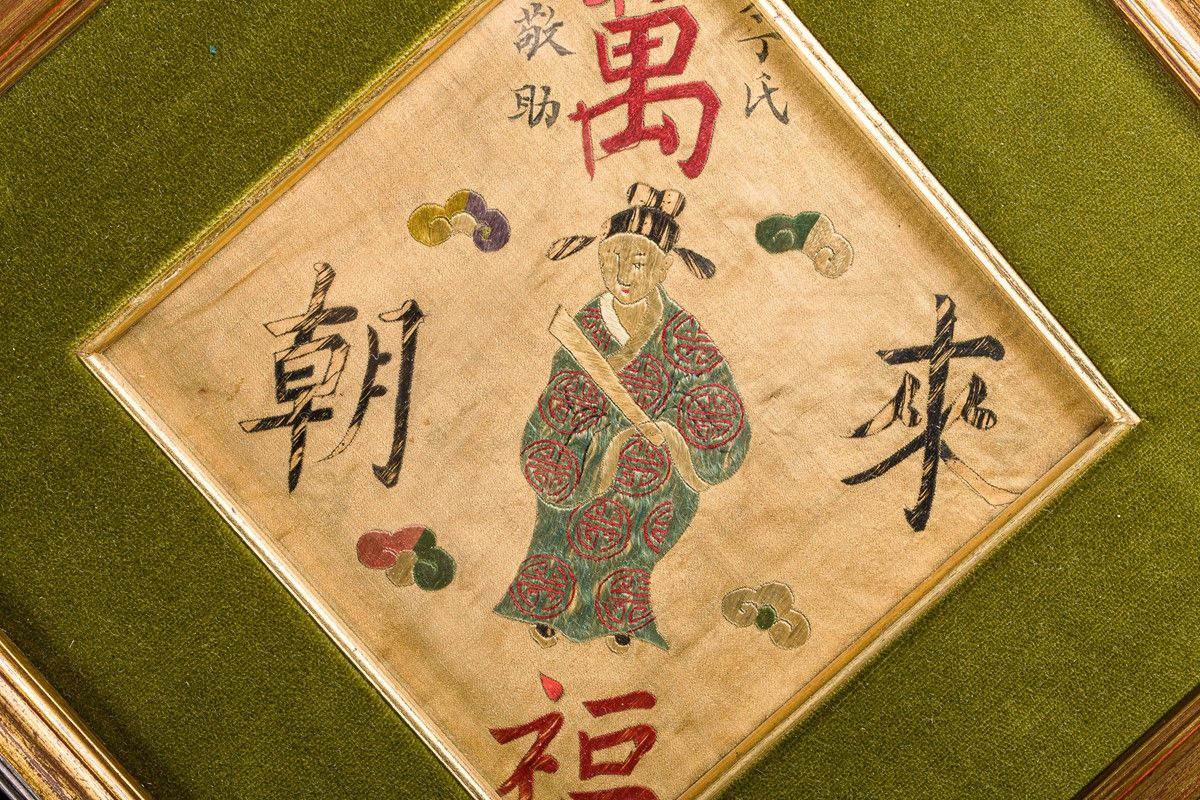 萬
福
來
朝
氏
敬助